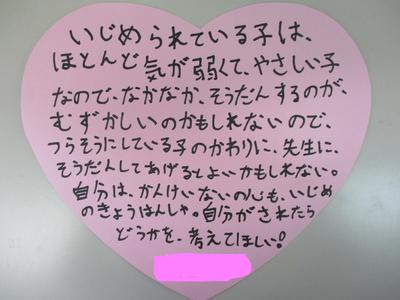 いじめられている子は、
ほとんど気が弱くて、やさしい子
なので、なかなか、そうだんするのが、
むずかしいのかもしれないので、
つらそうにしている子のかわりに、先生に、
そうだんしてあげるとよいかもしれない。
自分は、かんけいないの心も、いじめ
のきょうはんしゃ。自分がされたら
どうかを、考えてほしい!